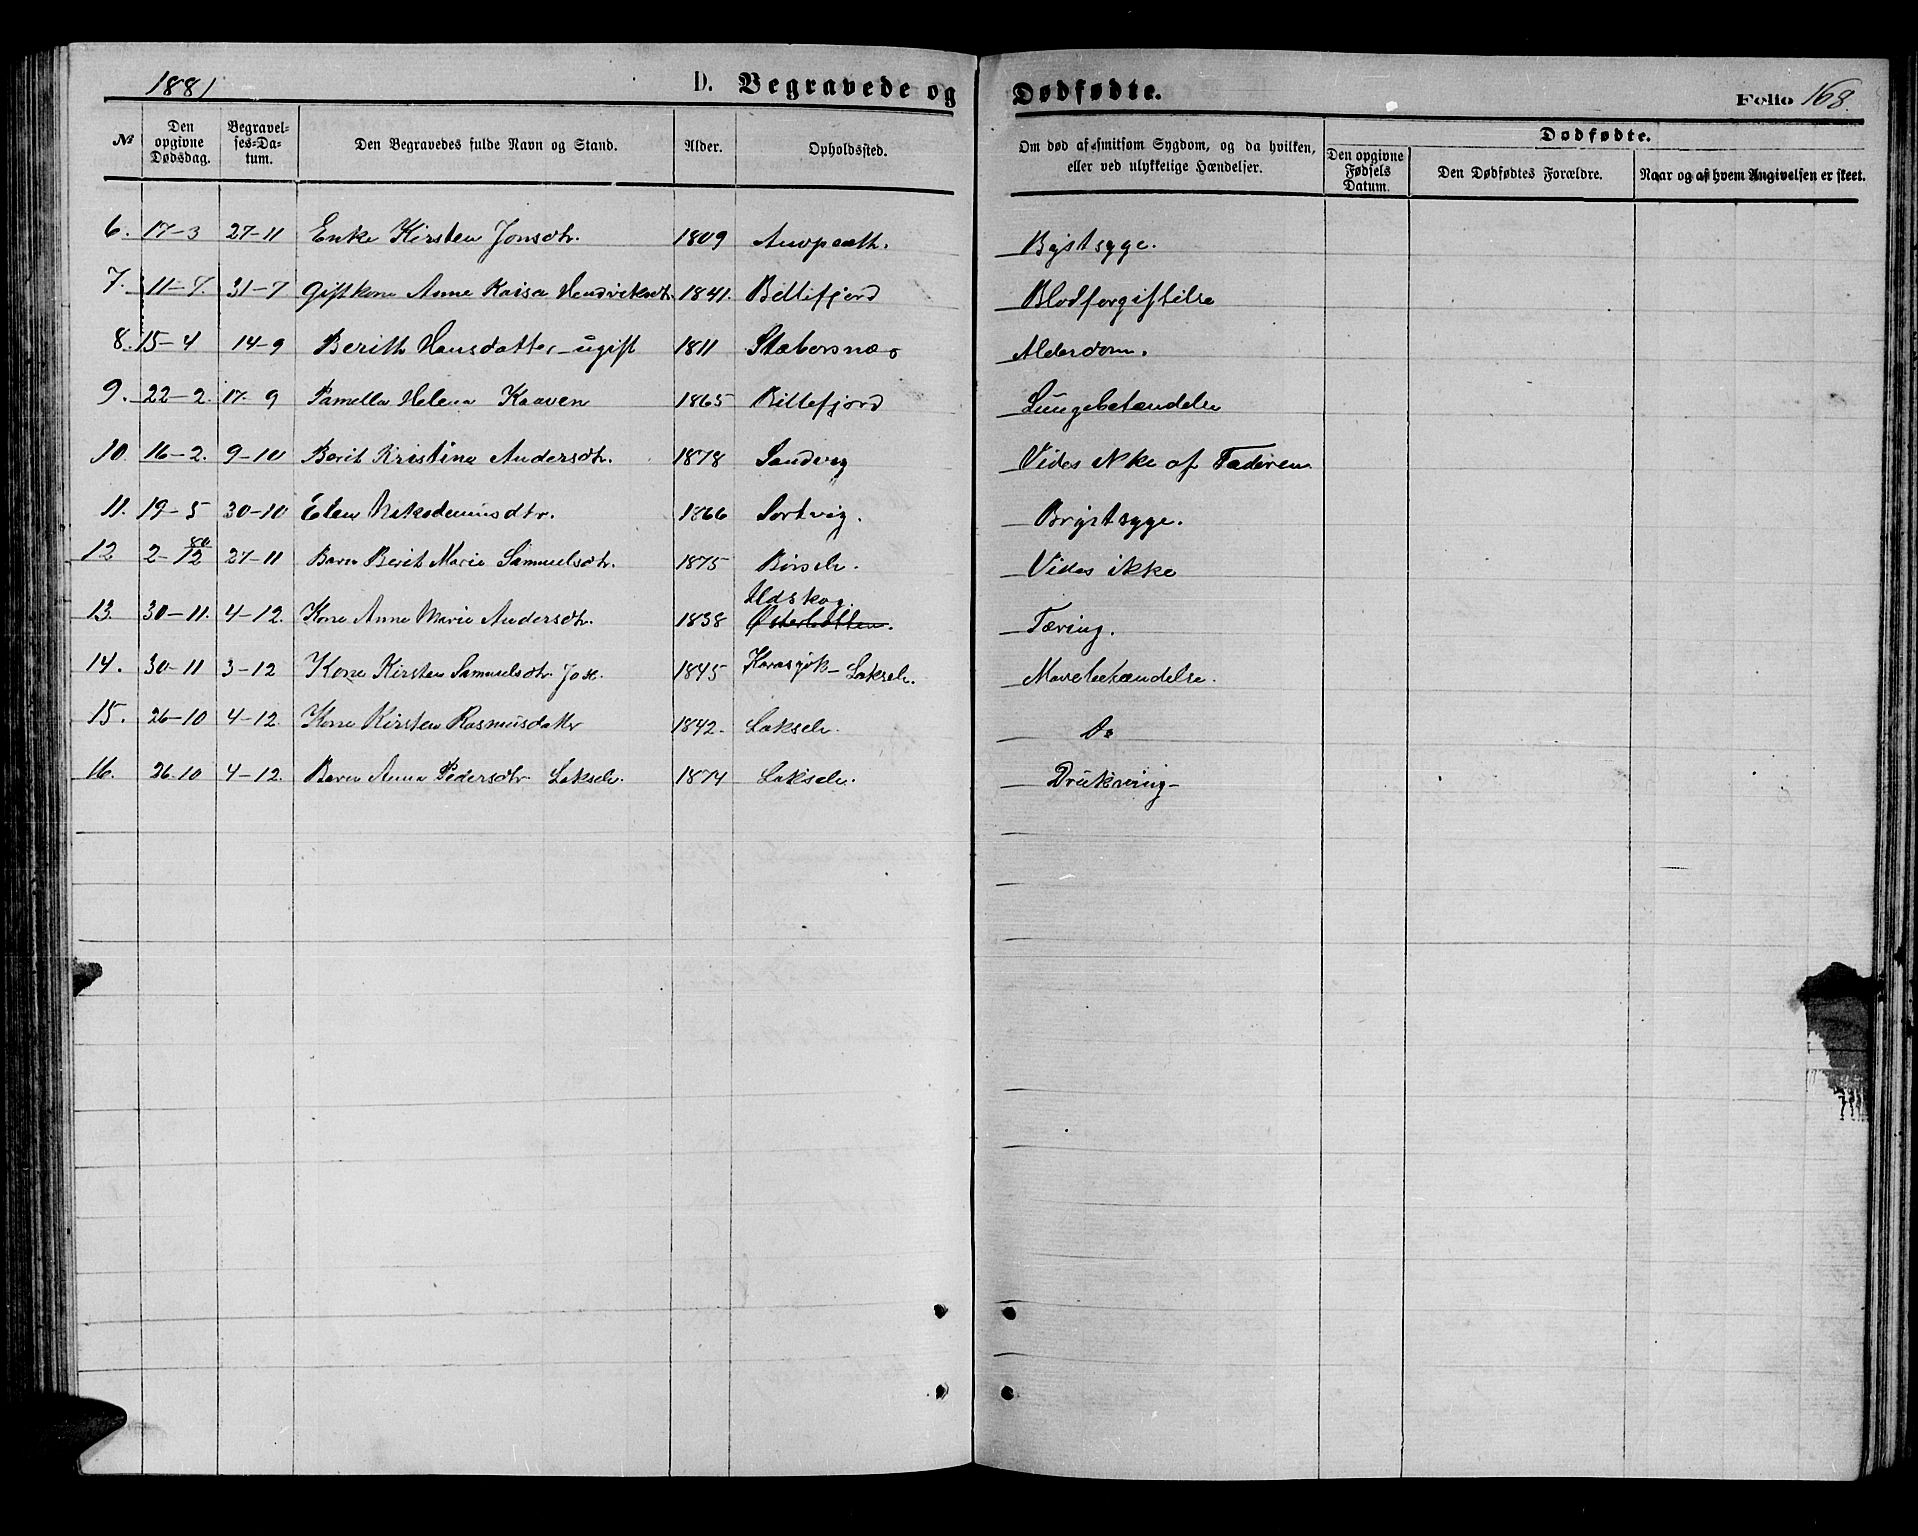 1881 D. Begravede og Dødfødte. Folio 168.
№ Den opgivne Dødsdag. Begravelses-Datum. Den Begravedes fulde Navn og Stand. Alder. Opholdssted. Om død af smitsom Sygdom, og da hvilken, eller ved ulykkelige Hændelser. Dødfødte.
Den opgivne Fødsels Datum. Den Dødfødtes Forældre. Naar og af hvem Angivelsen er skeet.
6. 17-3 27-11 Enke Kirsten Jonsdtr. 1809 Brystsyge.
7. 31-7 Giftkone Anne Kaisa Hendriksdtr. 1841. Billefjord Blodforgiftilse
8. 15-4 14-9 Berith Hansdatter-ugift 1811 Alderdom.
9. 22-2. 17-9 Pamella Helena Kaaven 1865 Billefjord Lungebetændelse
10. 16-2. 9-10 Berit Kristina Andersdtr. 1878 Sandvig Vides ikke af Faderen
11. 19-5 30-10 Elen Nikodemusdtr. 1866 Sortvig. Brystsyge.
12 2-12 80 27-11 Barn Berit Marie Samuelsdtr. 1875 Børselv. Vides ikke
13. 30-11. 4-12. Kone Anne Marie Andersdtr. 1838 Udskog. Østerbotten. Tæring.
14. 30-11 3-12 Kone Kirsten Samuelsdtr. 1845 Karasjok-Lakselv. Mavebetændelse.
15. 26-10 4-12. Kone Kirsten Rasmusdatter 1842. Lakselv. Do
16. 26.10 4-12. Barn Anna Pedersdtr. Lakselv. 1874 Lakselv. Drukning-